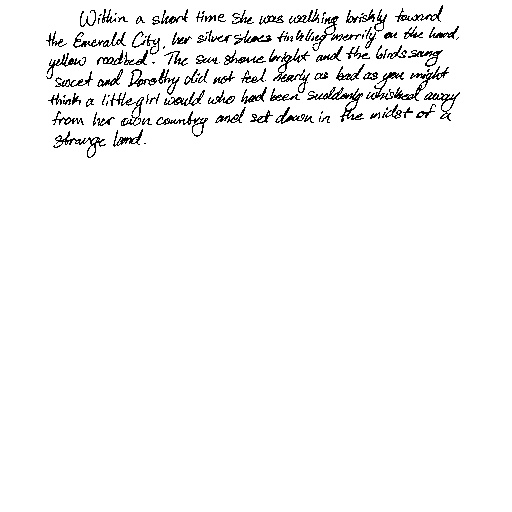 Within a short time she was walking briskly toward
the Emerald City, her silver shoes tinkling merrily on the hard,
yellow roadbed. The sun shone bright and the birds sang
sweet and Dorothy did not feel nearly as bad as you might
think a little girl would who had been suddenly whisked away
from her own country and set down in the midst of a
strange land.